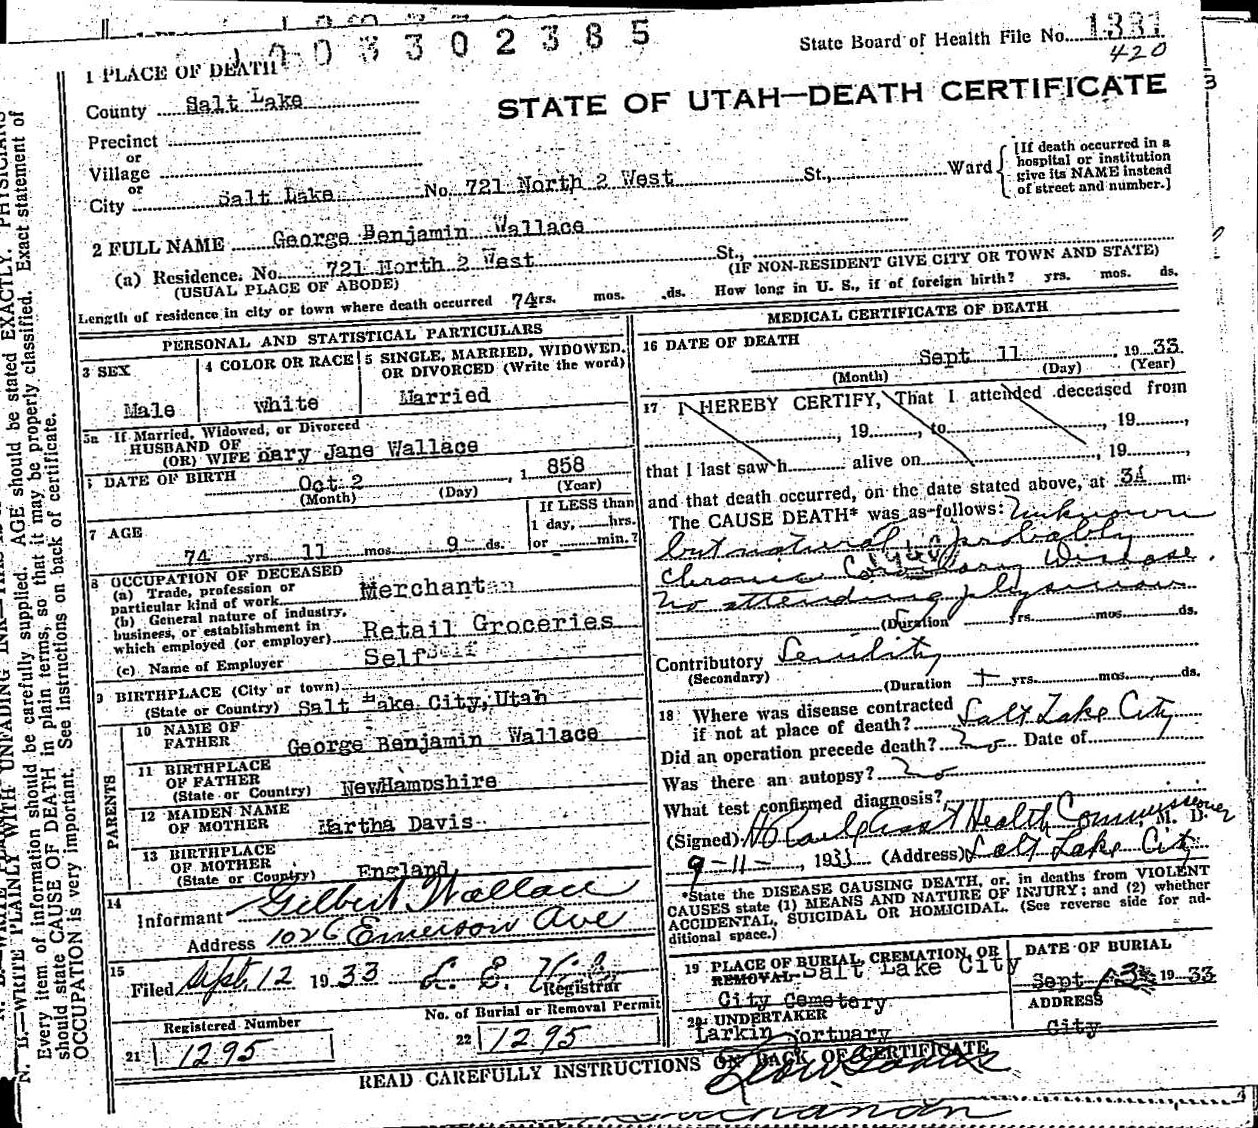 1003302385
State Board of Health File No. 1331
420
1 PLACE OF DEATH
STATE OF UTAH—DEATH CERTIFICATE
County Salt Lake
Precinct
or
Village
or
City Salt Lake No. 721 North 2 West St., Ward
[If death occurred in a
hospital or institution
give its NAME instead
of street and number.]
2 FULL NAME George Benjamin Wallace
(a) Residence. No. 721 North 2 West St.,
(USUAL PLACE OF ABODE) (IF NON-RESIDENT GIVE CITY OR TOWN AND STATE)
Length of residence in city or town where death occurred 74 rs. mos. ds. How long in U. S., if of foreign birth? yrs. mos. ds.
PERSONAL AND STATISTICAL PARTICULARS
3 SEX
Male
4 COLOR OR RACE
White
5 SINGLE, MARRIED, WIDOWED,
OR DIVORCED (Write the word)
Married
5a If Married, Widowed, or Divorced
HUSBAND OF
(OR) WIFE Mary Jane Wallace
DATE OF BIRTH Oct 2, 1 858
(Month) (Day) (Year)
7 AGE
74 yrs. 11 mos. 9 ds.
If LESS than
1 day, hrs.
or min.?
8 OCCUPATION OF DECEASED
(a) Trade, profession or
particular kind of work Merchant
(b) General nature of industry,
business, or establishment in
which employed (or employer) Retail Groceries
(c) Name of Employer Self Self
9 BIRTHPLACE (City or town)
(State or Country) Salt Lake City, Utah
PARENTS
10 NAME OF
FATHER George Benjamin Wallace
11 BIRTHPLACE
OF FATHER
(State or Country) NewHampshire
12 MAIDEN NAME
OF MOTHER Martha Davis
13 BIRTHPLACE
OF MOTHER
(State or Country) England
14
Informant Gilbert Wallace
Address 1026 Emerson Ave
15
Filed Sept. 12 1933
Registrar
Registered Number
21 1295
No. of Burial or Removal Permit
22 1295
MEDICAL CERTIFICATE OF DEATH
16 DATE OF DEATH
Sept 11, 19 33
(Month) (Day) (Year)
17 I HEREBY CERTIFY, That I attended deceased from
, 19, to, 19,
that I last saw h alive on, 19,
and that death occurred, on the date stated above, at 3A m.
The CAUSE DEATH* was as follows: Unknown
but natural, probably
chronic Coronary Disease.
No attending physician
(Duration yrs. mos. ds.
Contributory Senility
(Secondary)
(Duration + yrs. mos. ds.
18 Where was disease contracted
if not at place of death? Salt Lake City
Did an operation precede death? No Date of
Was there an autopsy? No
What test confirmed diagnosis?
(Signed) Asst Health Commissioner M. D.
9-11-, 1933 (Address) Salt Lake City
*State the DISEASE CAUSING DEATH, or, in deaths from VIOLENT
CAUSES state (1) MEANS AND NATURE OF INJURY; and (2) whether
ACCIDENTAL, SUICIDAL OR HOMICIDAL. (See reverse side for ad-
ditional space.)
19 PLACE OF BURIAL, CREMATION, OR
REMOVAL Salt Lake City
City Cemetery
DATE OF BURIAL
Sept 13 19 33
20 UNDERTAKER
Larkin Mortuary
ADDRESS
City
READ CAREFULLY INSTRUCTIONS ON BACK OF CERTIFICATE
N. B.—WRITE PLAINLY WITH UNFADING INK—
Every item of information should be carefully supplied. AGE should be stated EXACTLY. PHYSICIANS
should state CAUSE OF DEATH in plain terms, so that it may be properly classified. Exact statement of
OCCUPATION is very important. See instructions on back of certificate.